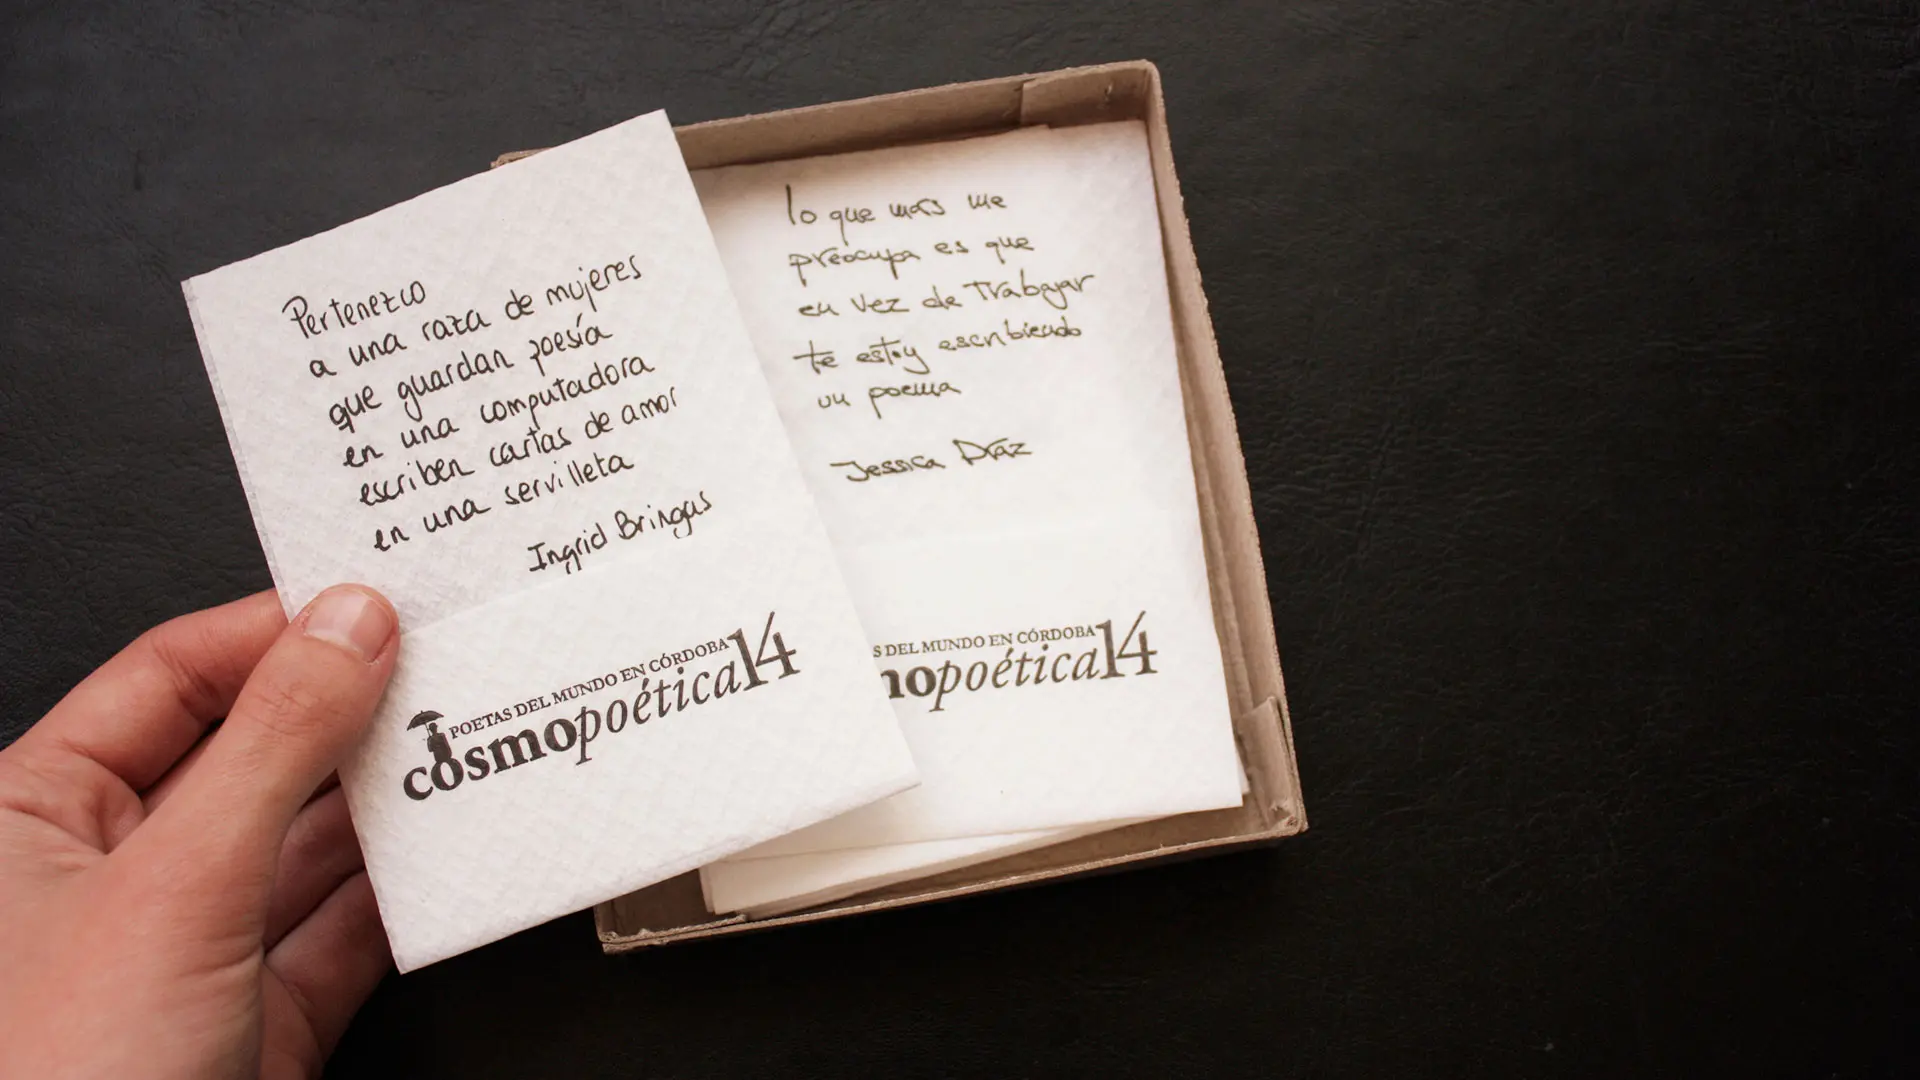 Pertenezco
a una raza de mujeres
que guardan poesía
en una computadora
escriben cartas de amor
en una servilleta
Ingrid Bringas
POETAS DEL MUNDO EN CÓRDOBA
cosmopoética14
lo que más me
preocupa es que
en vez de Trabajar
te estoy escribiendo
un poema
Jessica Díaz
S DEL MUNDO EN CÓRDOBA
mopoética14